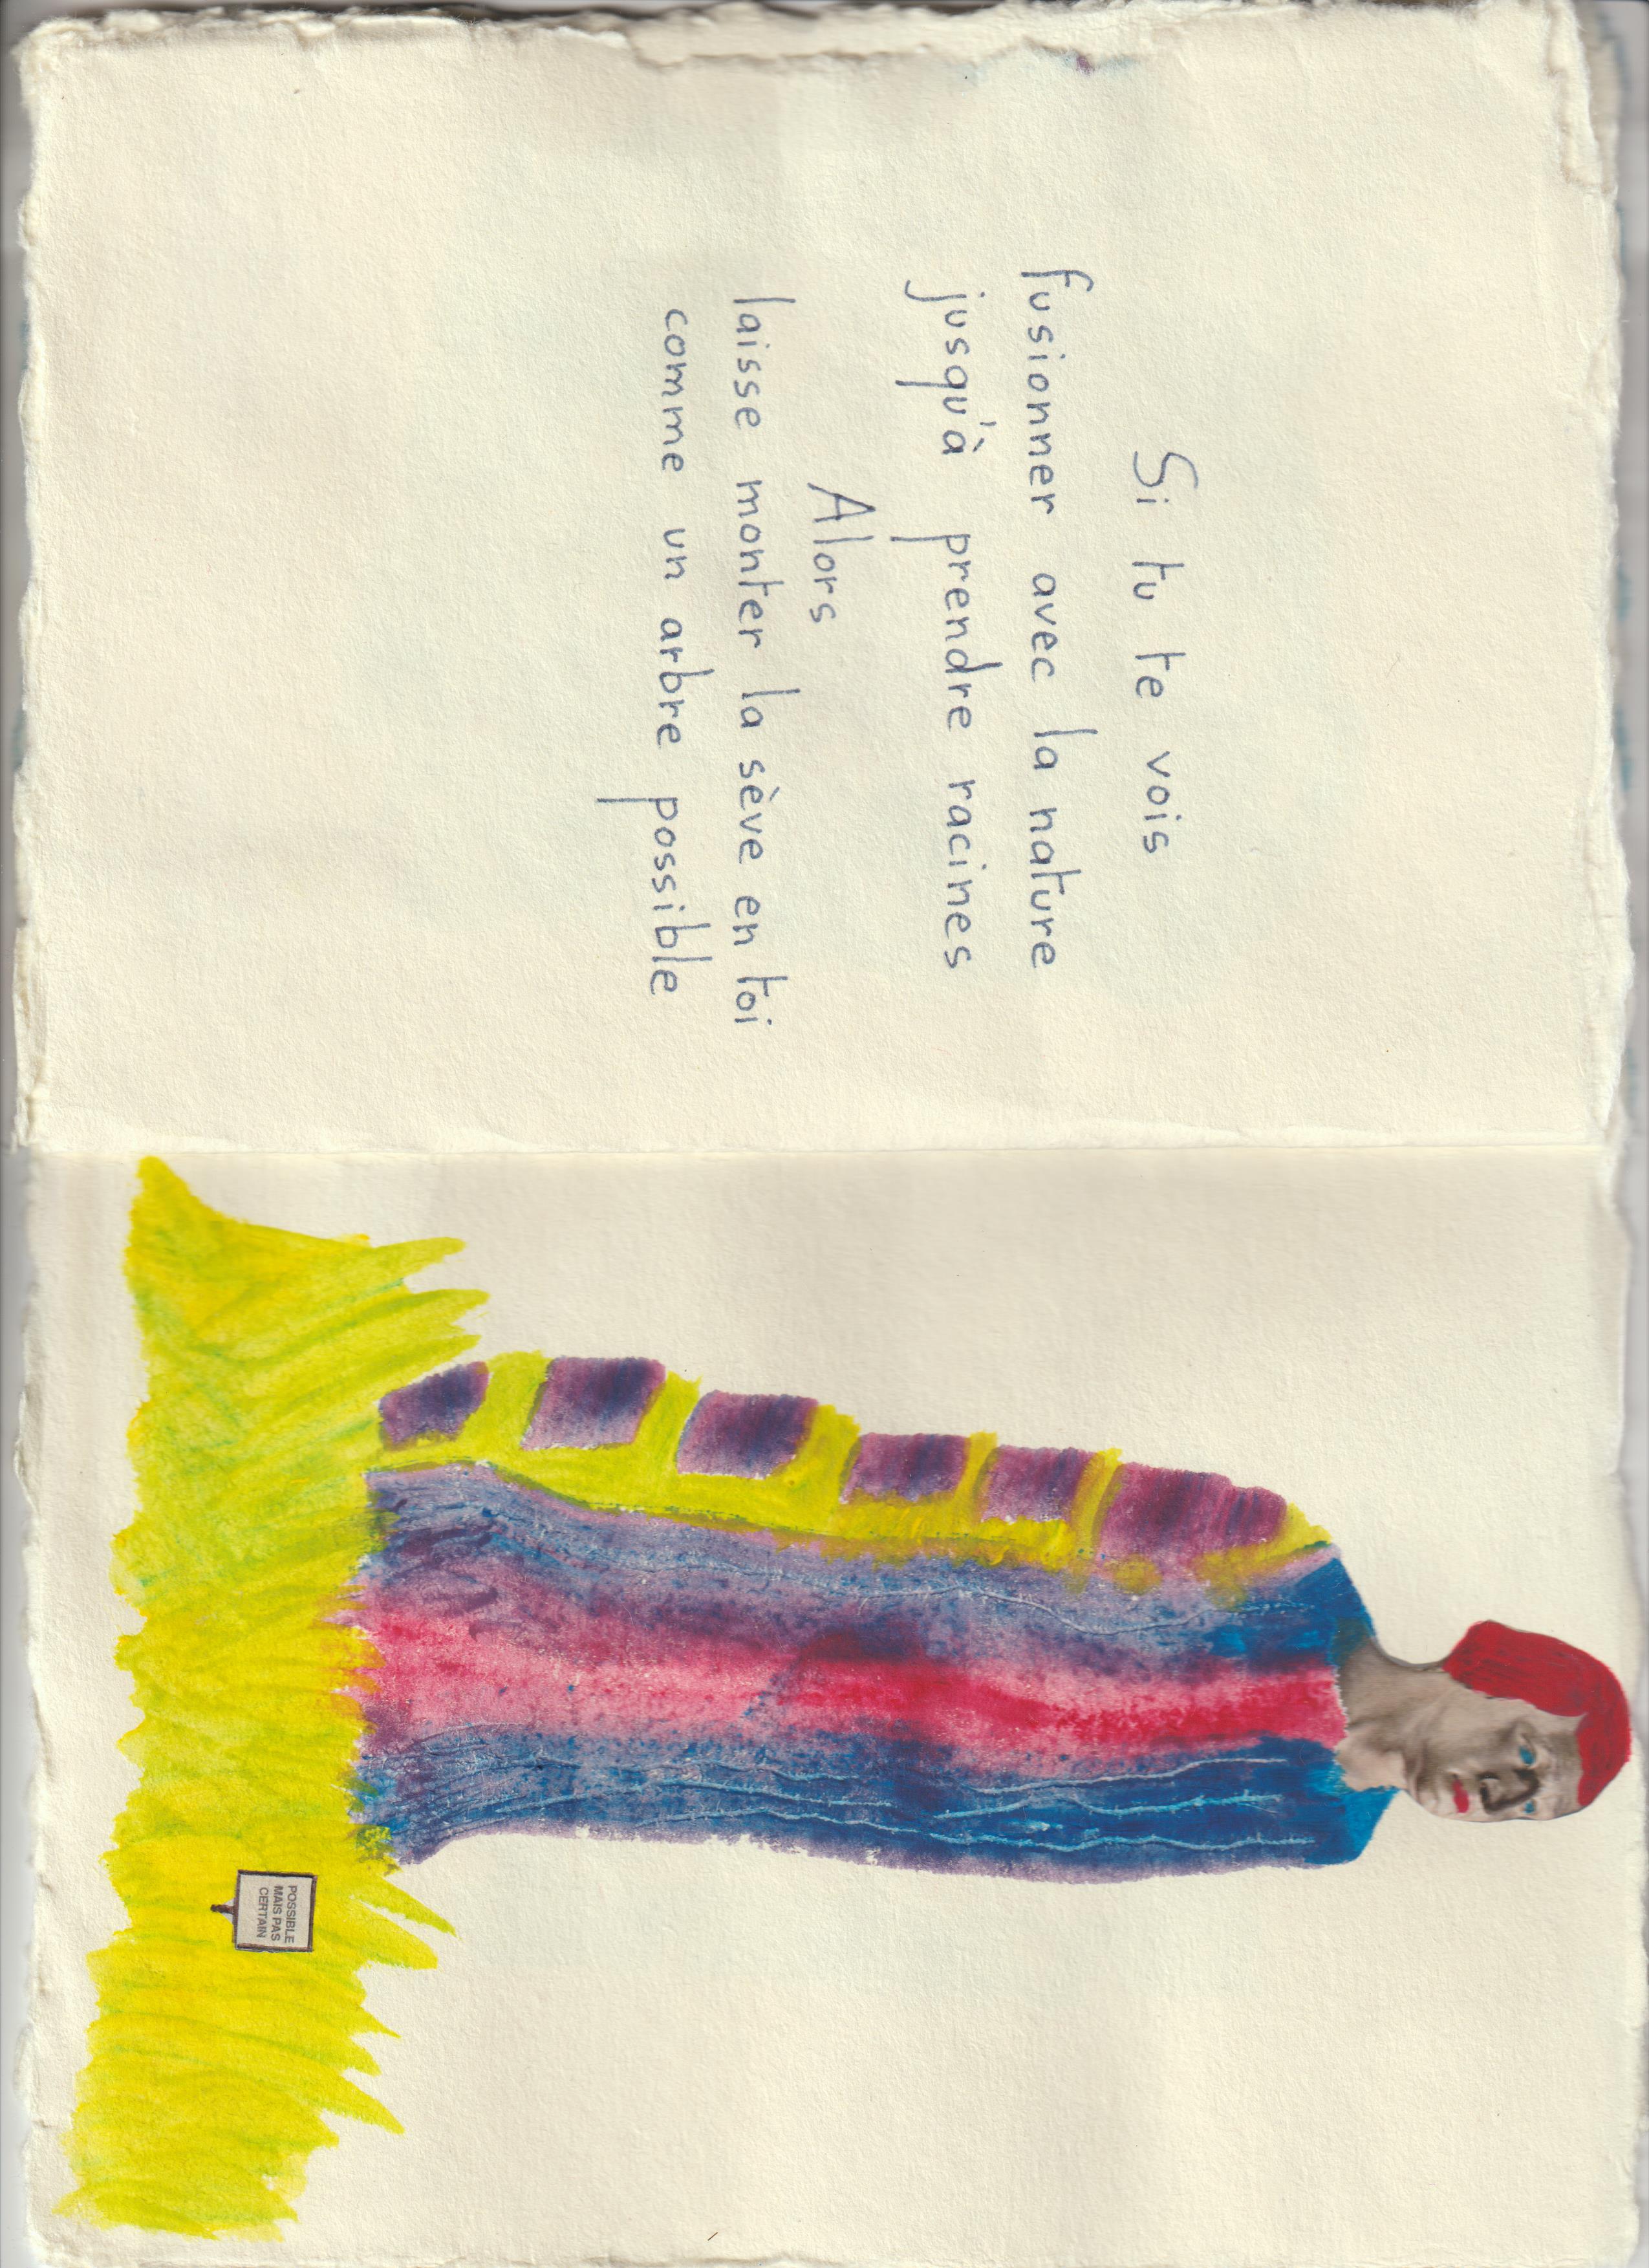 Si tu te vois
fusionner avec la nature
jusqu'à prendre racines
Alors
laisse monter la sève en toi
comme un arbre possible
POSSIBLE
MAIS PAS
CERTAIN